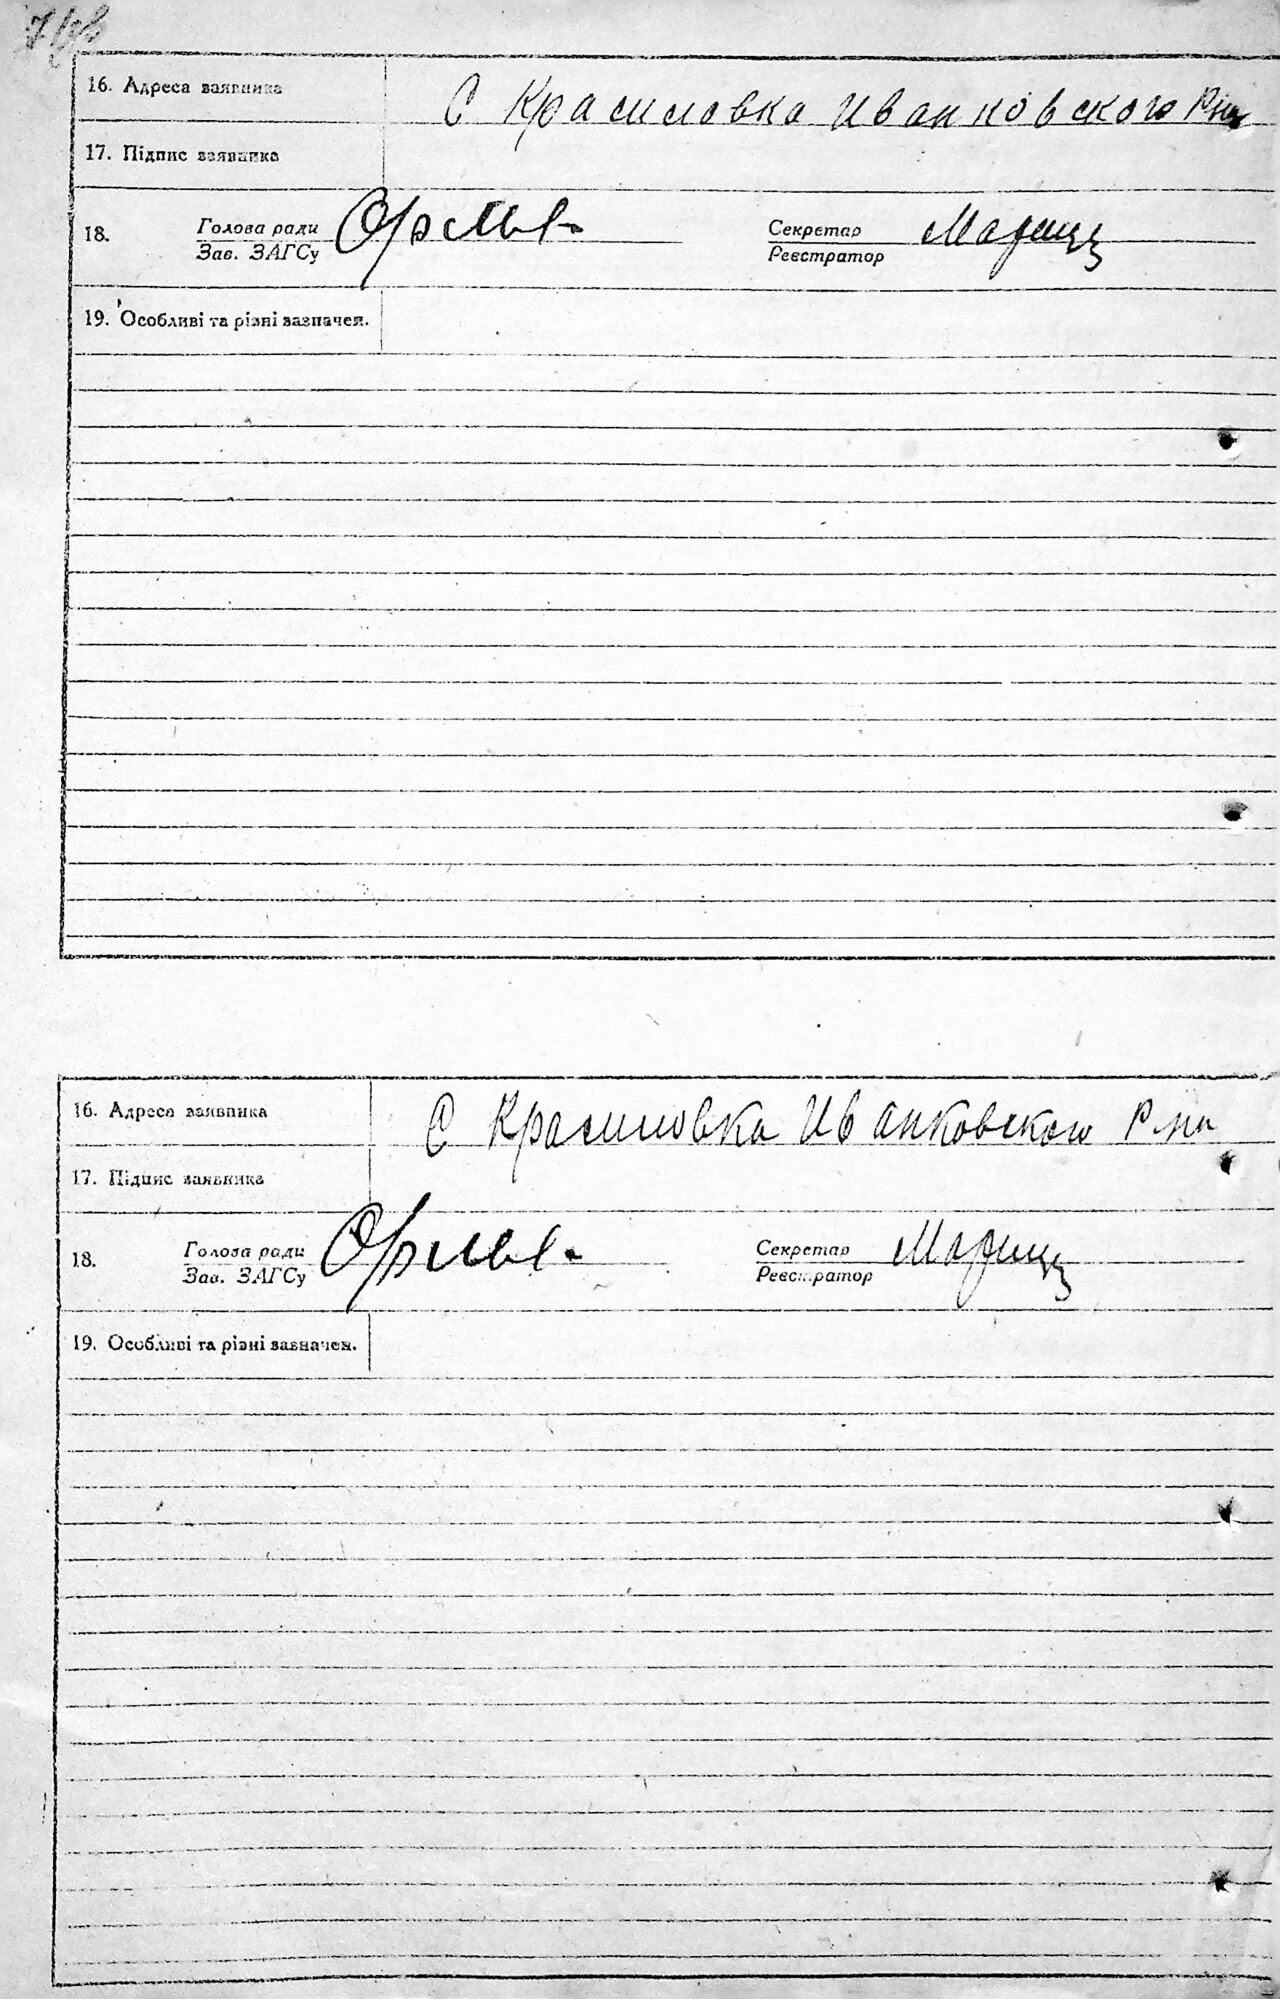 16. Адреса заявника С Красиловка Иванковского Р на
17. Підпис заявника
18. Голова ради Секретар
Зав. ЗАГСу Реєстратор
19. Особливі та різні зазначен.
16. Адреса заявника С Красиловка Иванковского Р на
17. Підпис заявника
18. Голова ради Секретар
Зав. ЗАГСу Реєстратор
19. Особливі та різні зазначен.